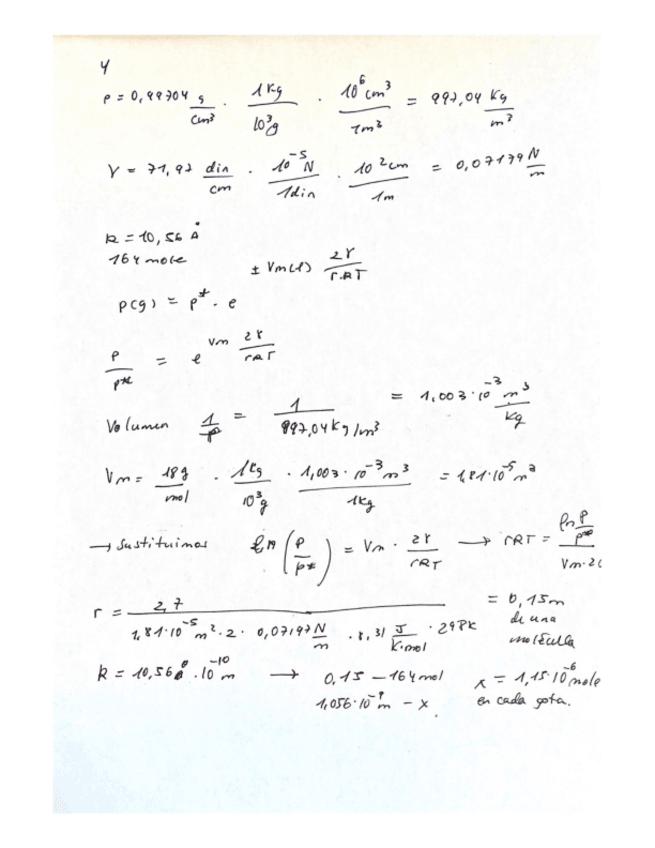 4
ρ = 0,99704 g/cm³ · 1 kg/10³g · 10⁶ cm³/1m³ = 997,04 kg/m³
γ = 71,97 din/cm · 10⁻⁵ N/1din · 10² cm/1m = 0,07179 N/m
R = 10,56 Å
164 mole
± Vm(l) 2γ/r.RT
p(g) = p* · e
P/p* = e^(Vm 2γ/rRT)
Volumen 1/ρ = 1/997,04 kg/m³ = 1,003·10⁻³ m³/kg
Vm = 18g/mol · 1kg/10³g · 1,003·10⁻³ m³/1kg = 1,81·10⁻⁵ m³
→ Sustituimos ln (P/p*) = Vm · 2γ/rRT → rRT = ln P/p* / Vm·2
r = 2,7 / 1,81·10⁻⁵ m² · 2 · 0,07197 N/m · 8,31 J/K·mol · 298K = 0,15m
de una
molécula
R = 10,56 Å · 10⁻¹⁰ m → 0,15 — 164 mol
1,056·10⁻⁹ m — x
x = 1,15·10⁻⁶ mole
en cada gota.